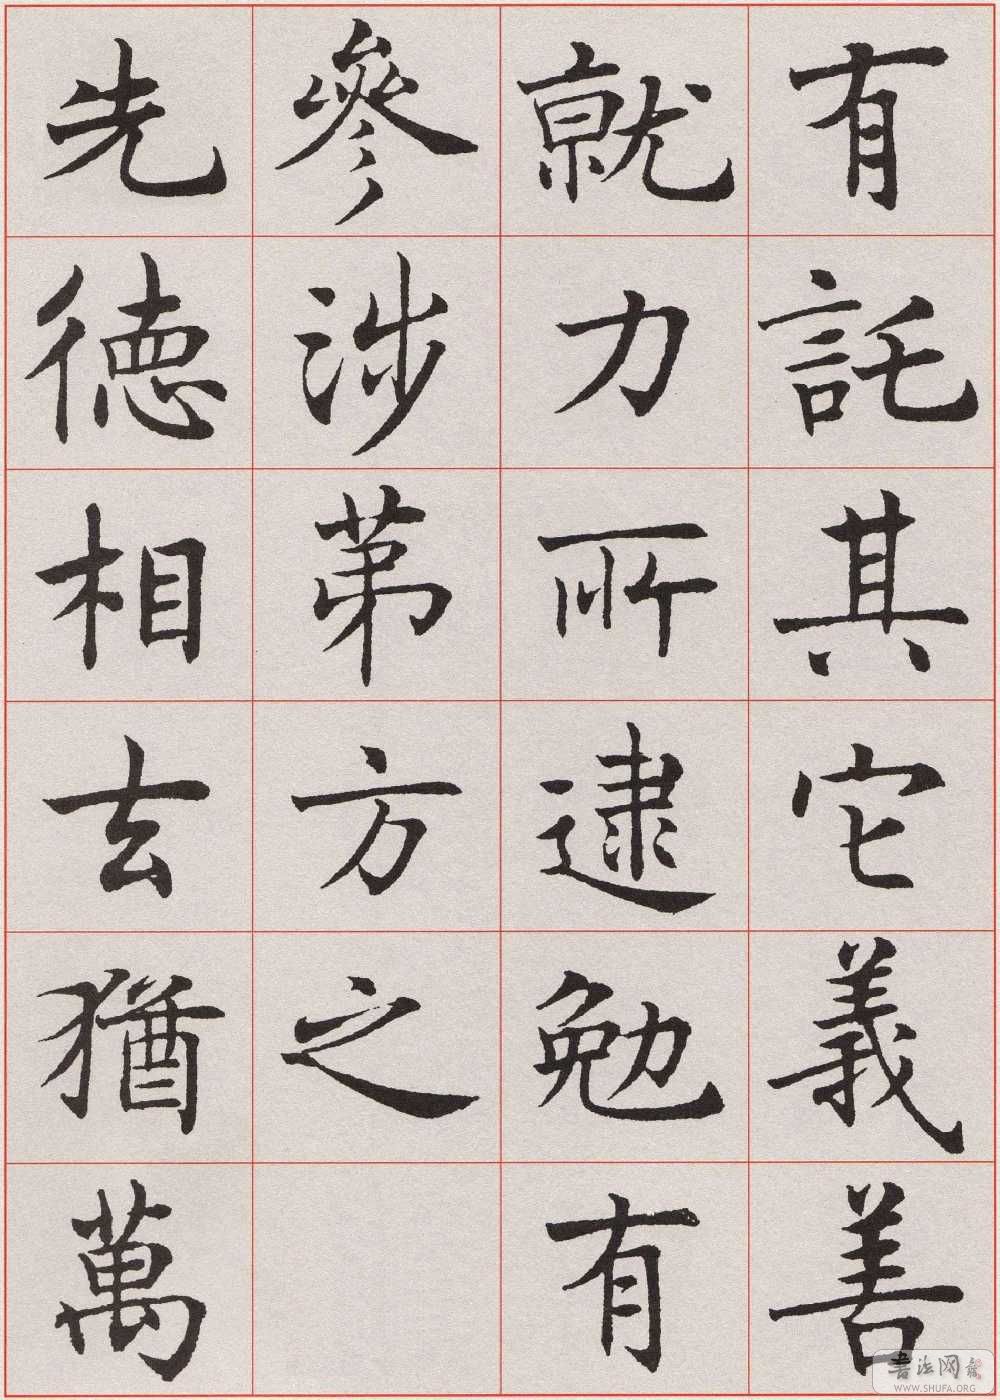 有託其它義善
就力所逮勉有
參涉苐方之
先德相去猶萬
书法网
WWW.SHUFA.ORG